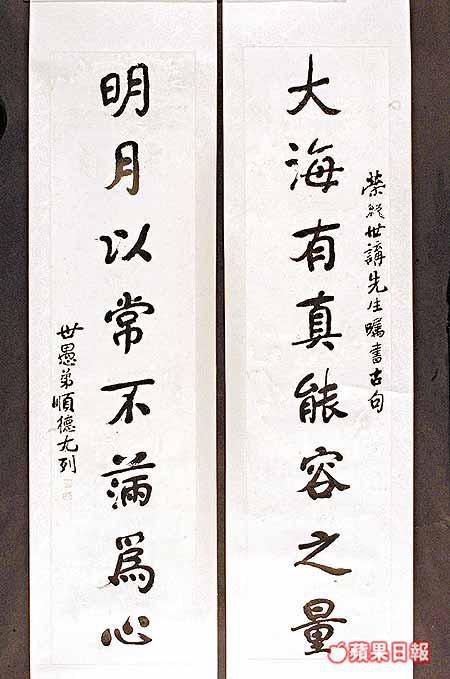 榮世講先生囑書古句
大海有真能容之量
明月以常不滿爲心
世愚弟順德尤列
蘋果日報